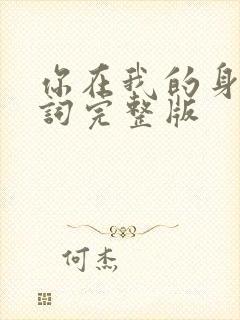 你在我的身
詞完整版
何杰